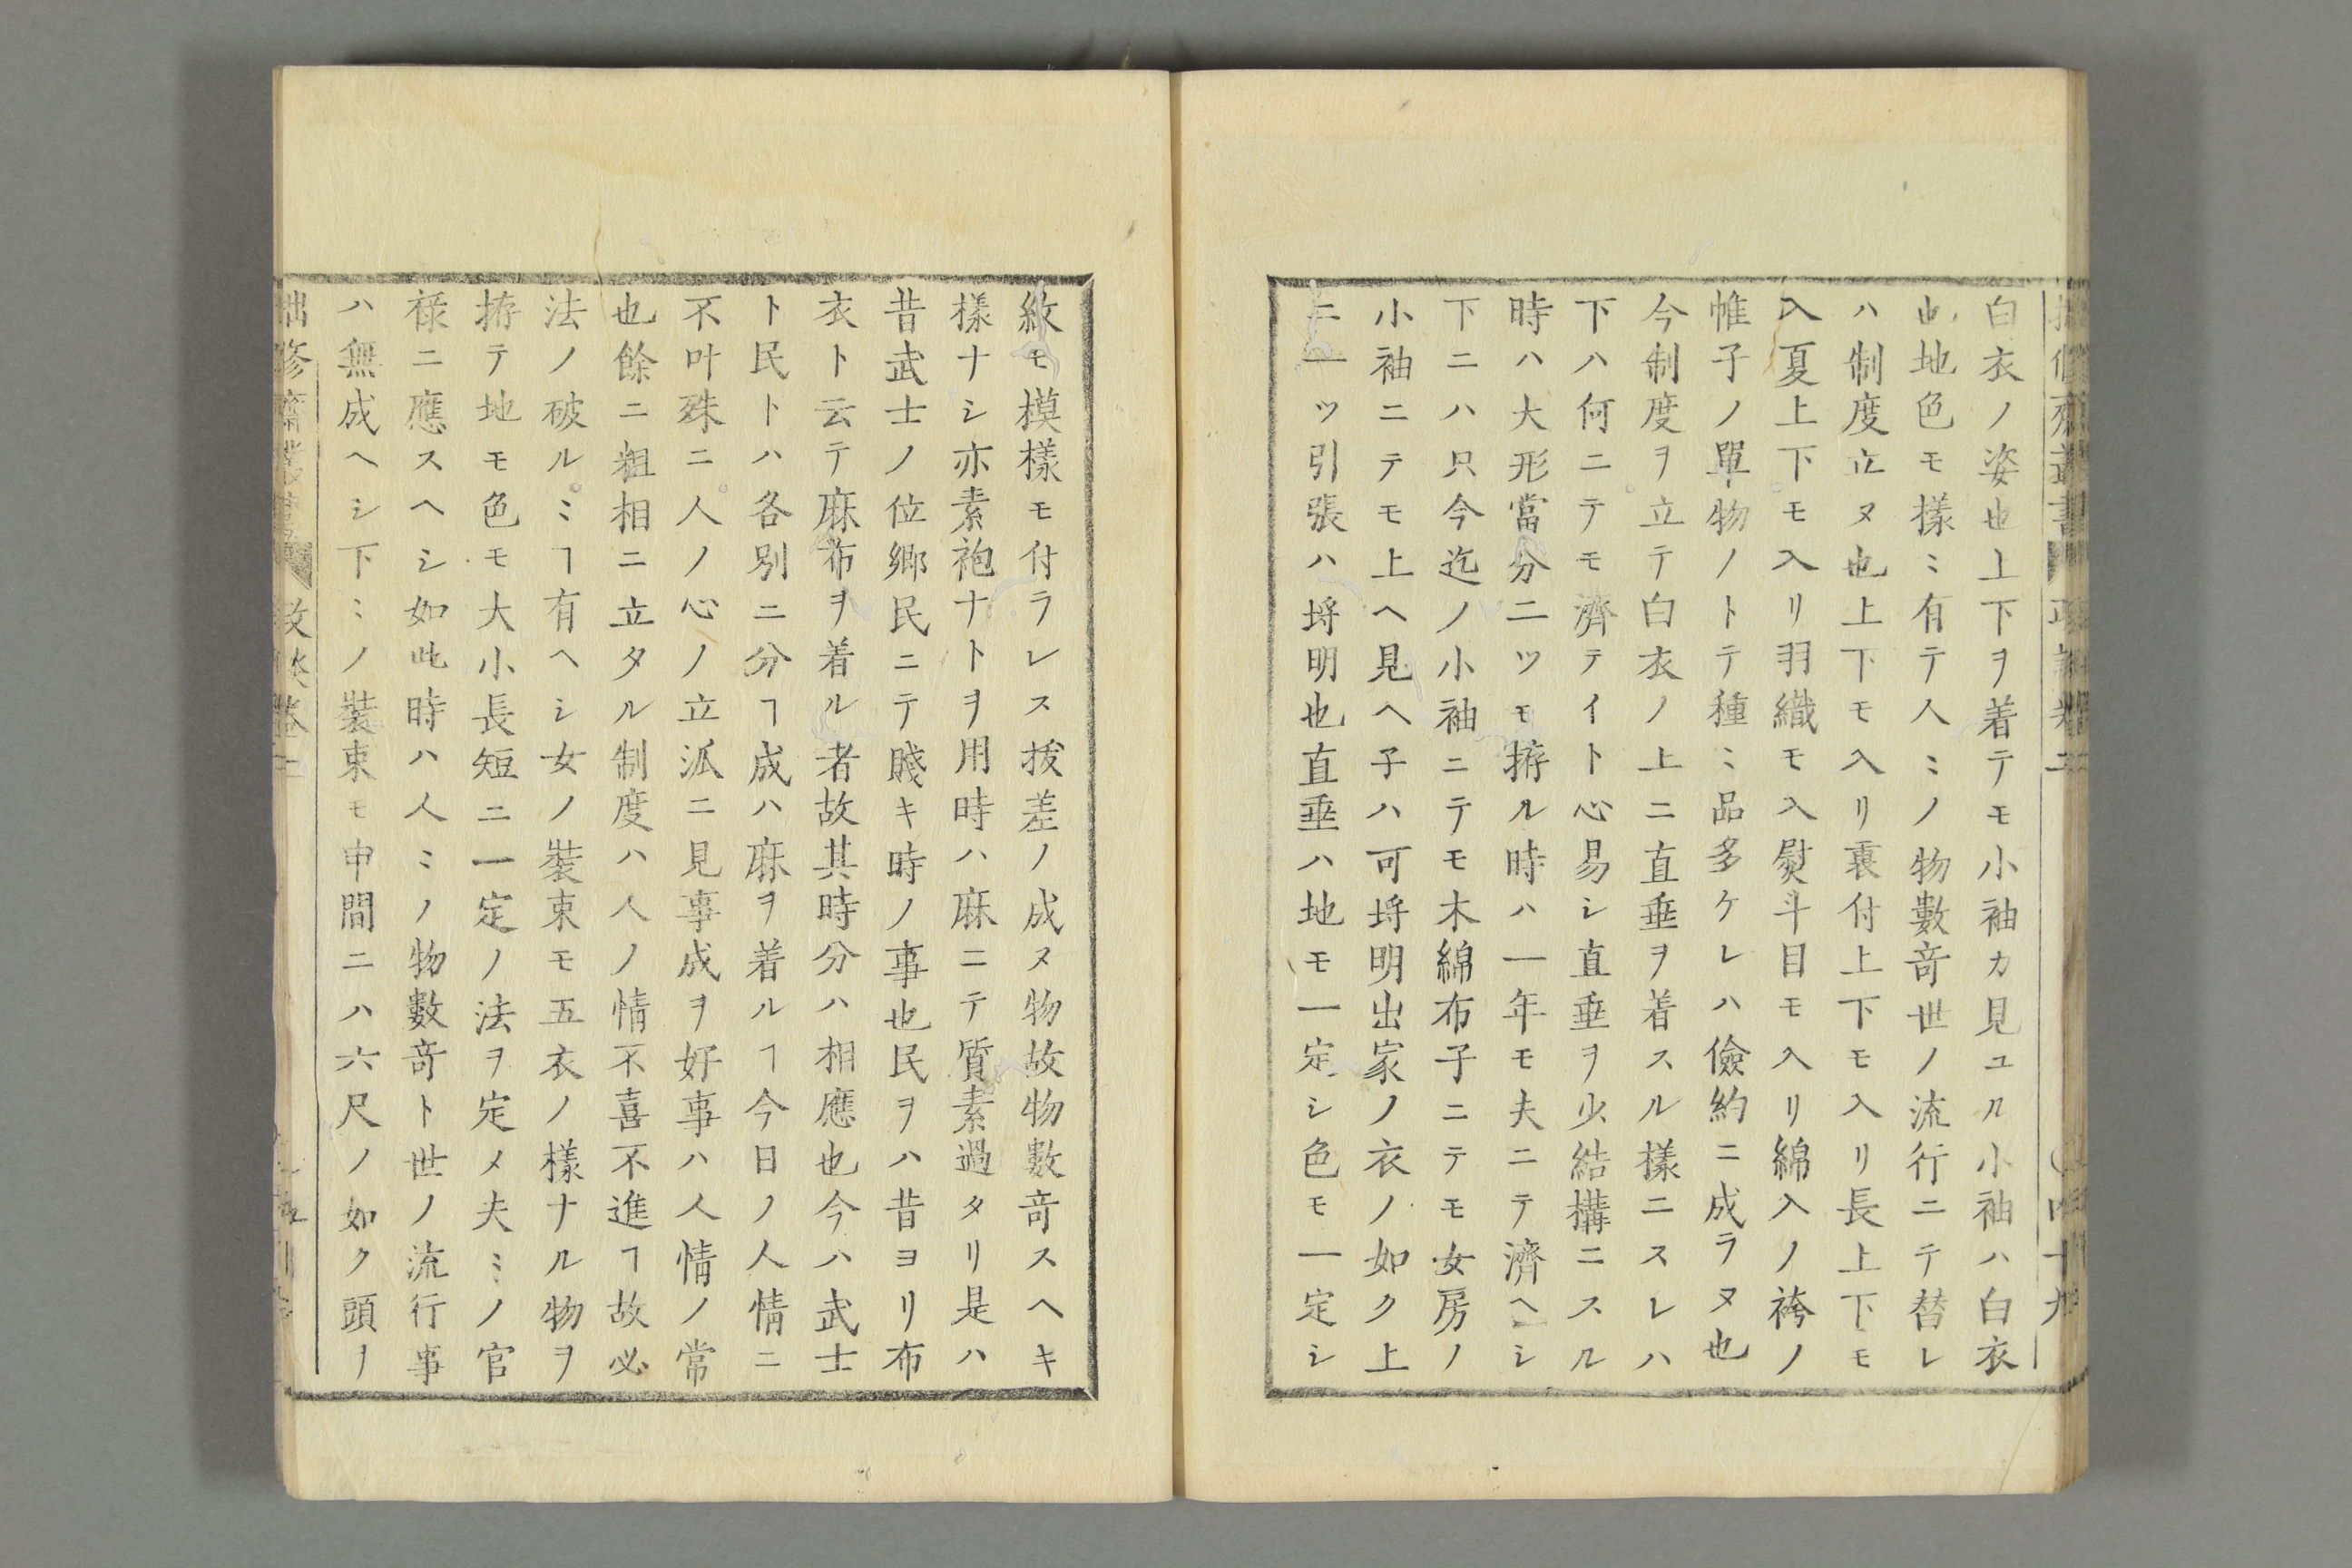 白衣ノ姿也上下ヲ着テモ小袖カ見ユル小袖ハ白衣
也地色モ樣ミ有テ人ミノ物數竒世ノ流行ニテ替レ
ハ制度立ヌ也上下モ入リ裏付上下モ入リ長上下モ
入夏上下モ入リ羽織モ入熨斗目モ入リ綿入ノ袴ノ
帷子ノ單物ノトテ種ミ品多ケレハ儉約ニ成ラヌ也
今制度ヲ立テ白衣ノ上ニ直垂ヲ着スル樣ニスレハ
下ハ何ニテモ濟テイト心易シ直垂ヲ少結構ニスル
時ハ大形當分二ツモ拵ル時ハ一年モ夫ニテ濟ヘシ
下ニハ只今迄ノ小袖ニテモ木綿布子ニテモ女房ノ
小袖ニテモ上ヘ見ヘ子ハ可埓明出家ノ衣ノ如ク上
ニ一ツ引張ハ埓明也直垂ハ地モ一定シ色モ一定シ
紋モ模樣モ付ラレス拔差ノ成ヌ物故物數竒スヘキ
樣ナシ亦素袍ナトヲ用時ハ麻ニテ質素過タリ是ハ
昔武士ノ位鄉民ニテ賤キ時ノ事也民ヲハ昔ヨリ布
衣ト云テ麻布ヲ着ル者故其時分ハ相應也今ハ武士
ト民トハ各別ニ分ヿ成ハ麻ヲ着ルヿ今日ノ人情ニ
不叶殊ニ人ノ心ノ立派ニ見事成ヲ好事ハ人情ノ常
也餘ニ粗相ニ立タル制度ハ人ノ情不喜不進ヿ故必
法ノ破ルミヿ有ヘシ女ノ裝束モ五衣ノ樣ナル物ヲ
拵テ地モ色モ大小長短ニ一定ノ法ヲ定メ夫ミノ官
祿ニ應スヘシ如此時ハ人ミノ物數竒ト世ノ流行事
ハ無成ヘシ下ミノ裝束モ中間ニハ六尺ノ如ク頭ノ